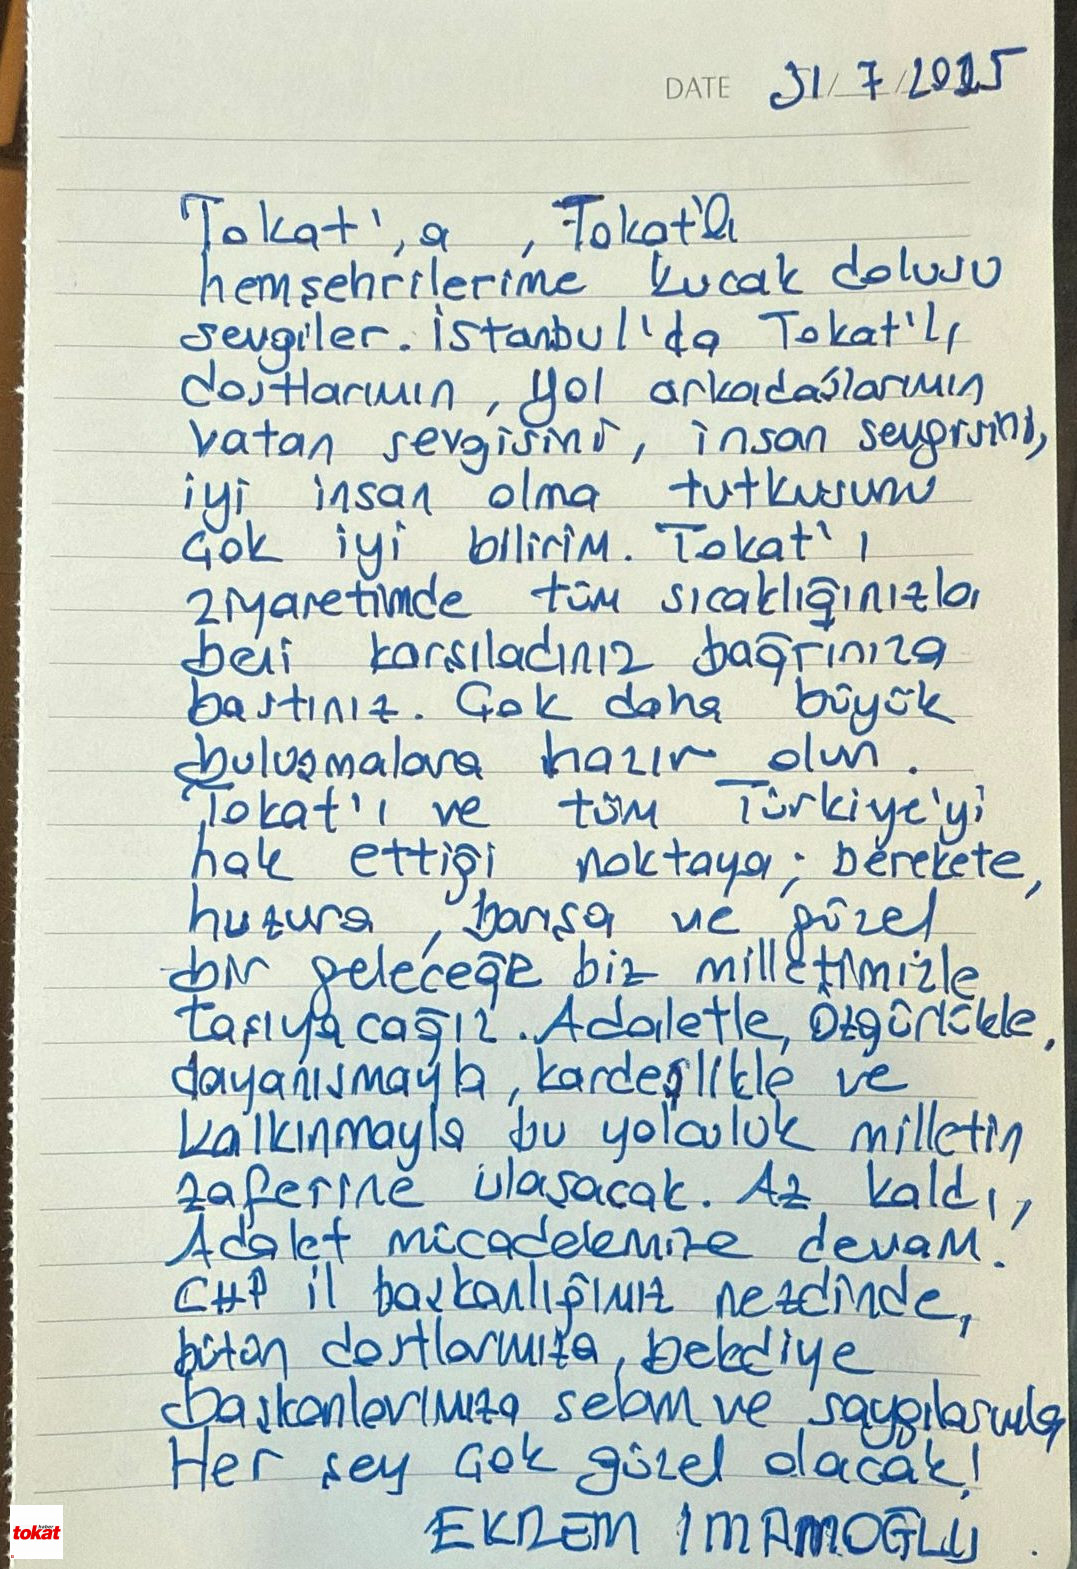 DATE 31/7/2025
Tokat',a , Tokat'lı
hemşehrilerime kucak dolusu
sevgiler. İstanbul'da Tokat'lı
dostlarımın, yol arkadaşlarımın
vatan sevgisini, insan sevgisini,
iyi insan olma tutkusunu
çok iyi bilirim. Tokat'ı
ziyaretimde tüm sıcaklığınızla
beni karşıladınız bağrınıza
bastınız. Çok daha büyük
buluşmalara hazır olun.
Tokat'ı ve tüm Türkiye'yi
hak ettiği noktaya; berekete,
huzura, barışa ve güzel
bir geleceğe biz milletimizle
taşıyacağız. Adaletle, özgürlükle,
dayanışmayla, kardeşlikle ve
kalkınmayla bu yolculuk milletin
zaferine ulaşacak. Az kaldı,
Adalet mücadelemize devam.
CHP il başkanlığımız nezdinde,
bütün dostlarımıza, belediye
başkanlarımıza selam ve saygılarımla
Her şey çok güzel olacak!
EKREM İMAMOĞLU
haber tokat